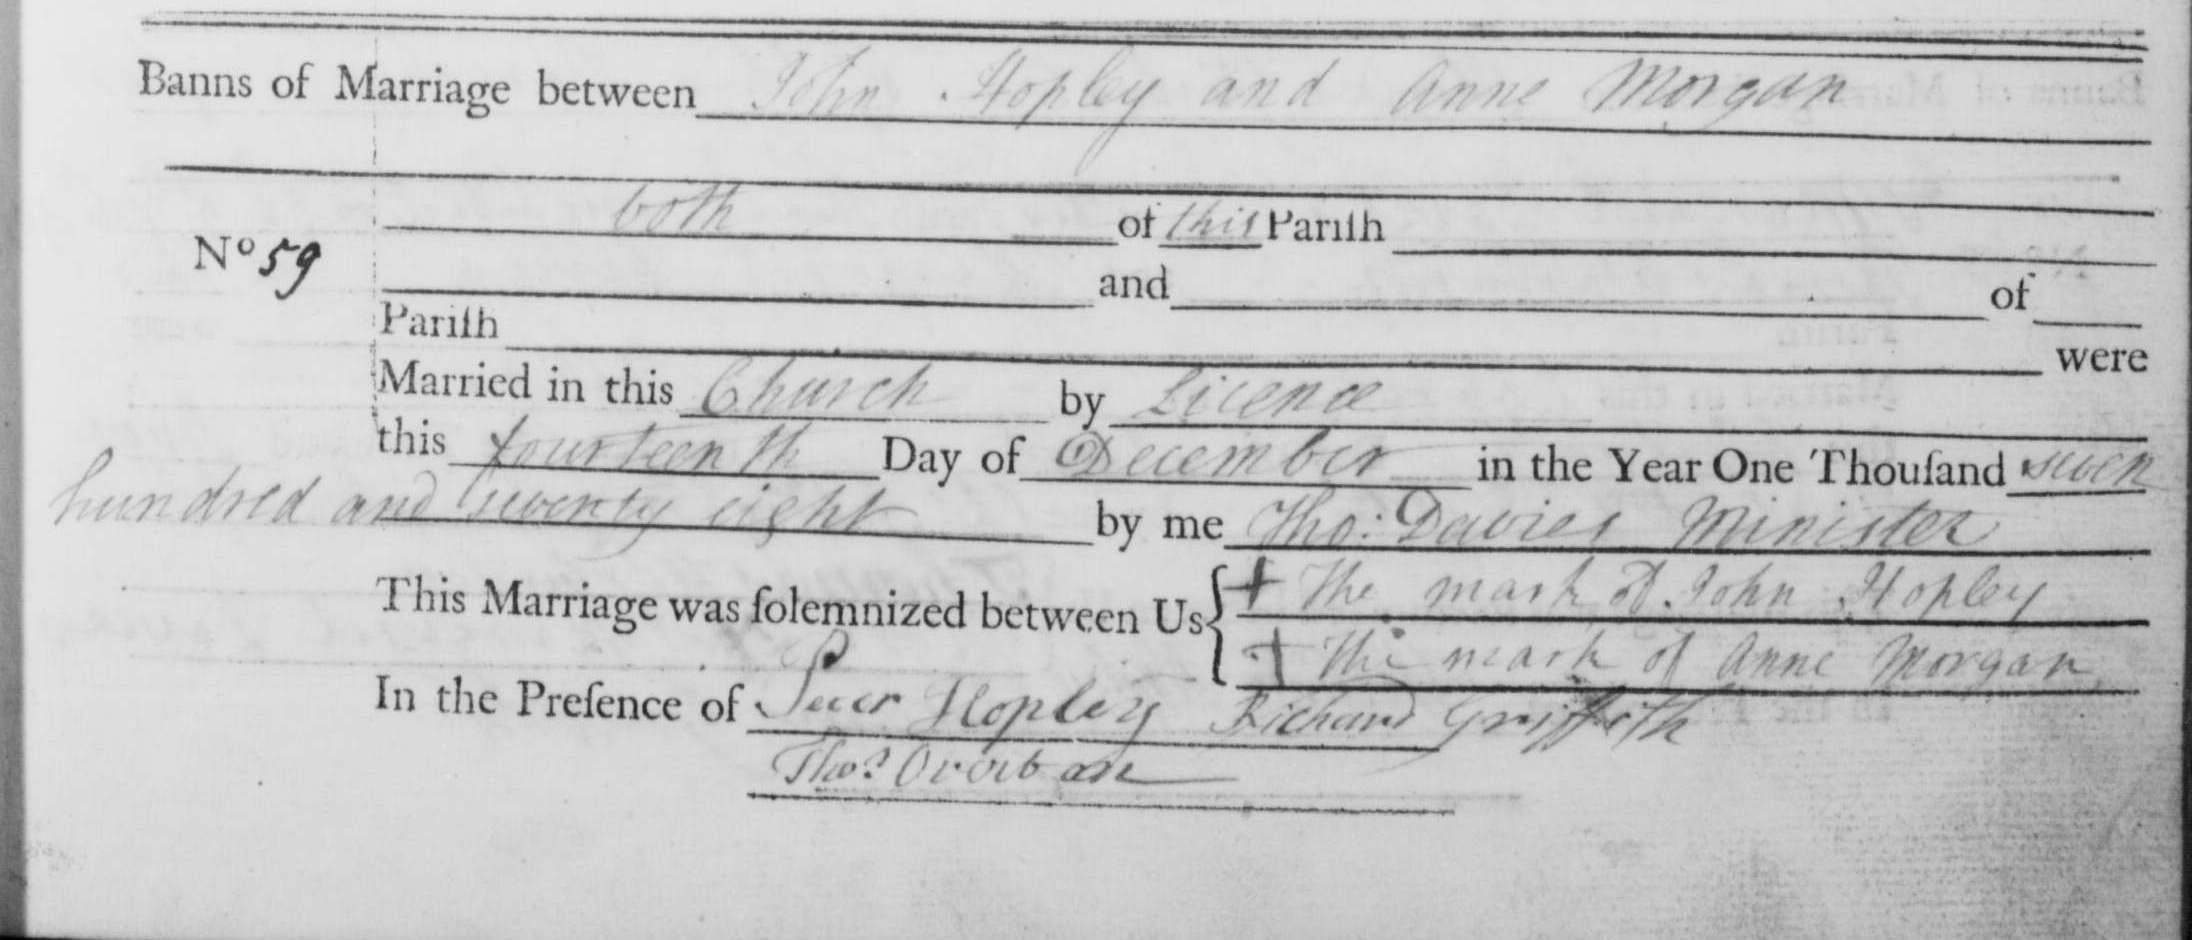 Banns of Marriage between John Hopley and Anne Morgan
both of this Pariſh
No 59
and of
Pariſh were
Married in this Church by Licence
this fourteenth Day of December in the Year One Thouſand seven
hundred and seventy eight by me Tho: Davies Minister
This Marriage was ſolemnized between Us { + The mark of John Hopley
+ The mark of Anne Morgan
In the Preſence of Peter Hopley Richard Griffith
Thos